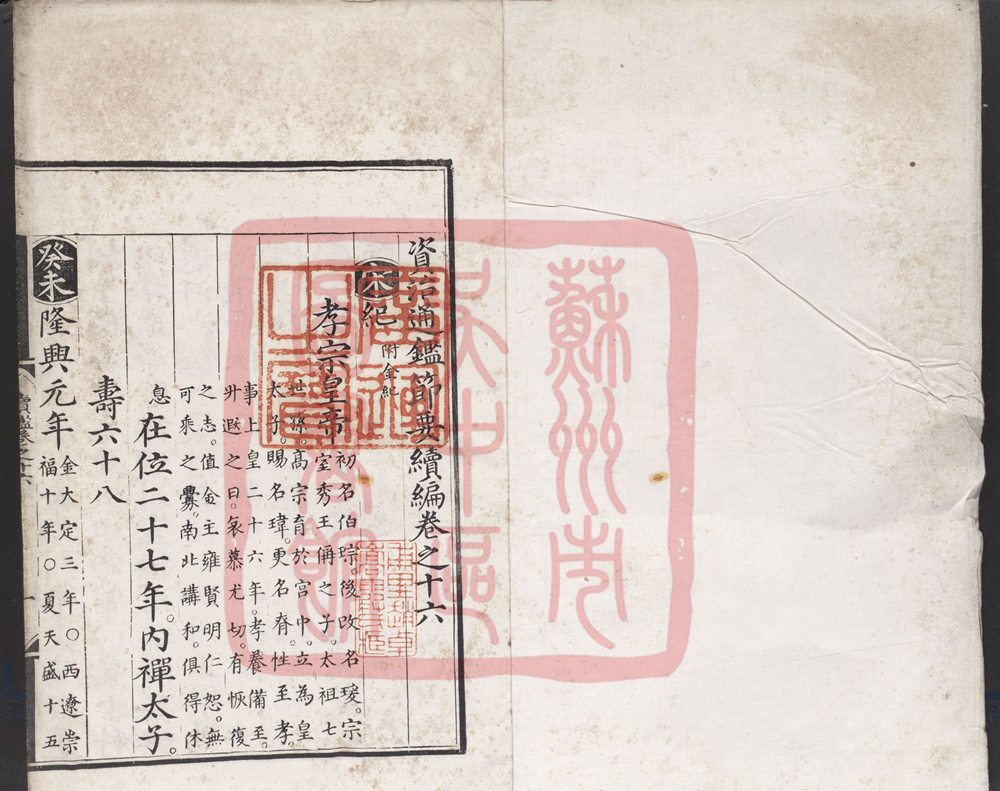 資治通鑑節要續編卷之十六
宋紀 附金紀
孝宗皇帝 初名伯琮。後改名瑗。宗
室秀王偁之子。太祖七
世孫。高宗育於宮中。立為皇
太子。賜名瑋。更名眘。性至孝。
事上皇二十六年。孝養備至。
升遐之日。哀慕尤切。有恢復
之志。值金主雍賢明仁恕。無
可乘之釁。南北講和。俱得休
息
在位二十七年。內禪太子。
壽六十八
癸未 隆興元年 金大定三年〇西遼崇
福十年〇夏天盛十五
蘇州市
吳中區
圖書館